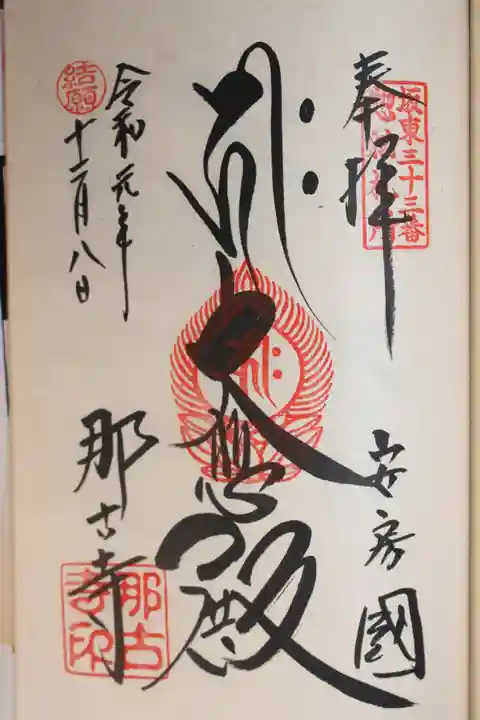 奉拝
坂東三十三番
安房國
大悲殿
結願
令和元年
十二月八日
那古寺
那古寺印